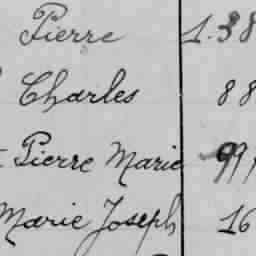 Pierre 1.38
Charles 88
Pierre Marie 99
Marie Joseph 16